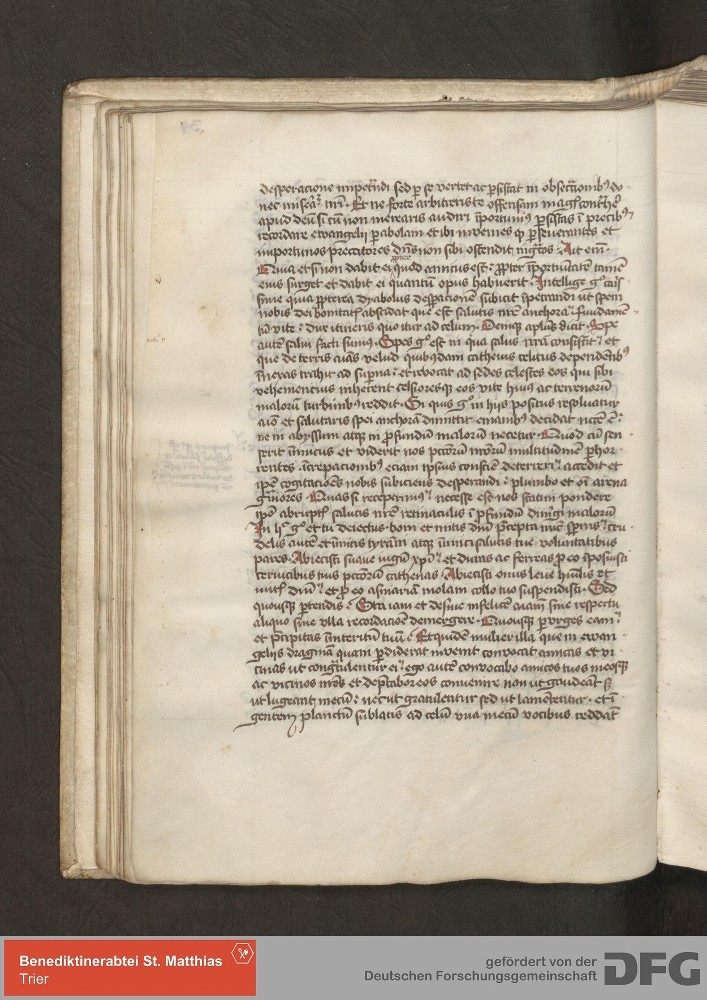 desperacione impetrandi sed per se vertet ac persistat in obsecracionibus do
nec misereatur nostri · Et ne forte arbitreris te offensam magis contrahere
apud deum si cum non merearis audiri importunus persistas in precibus
recordare ewangelij parabolam et ibi invenies quod perseverantes et
importunos precatores dominus non sibi ostendit ingratos · Ait enim ·
propter
Quia et si non dabit ei quod amicus est · propter importunitatem tamen
eius surget et dabit ei quantum opus habuerit · Intellige ergo carissime
sime quia propterea dyabolus desperacionem subicit impetrandi ut spem
nobis dei bonitatis abscidat que est salutis nostre anchora · fundamen
tum vite · dux itineris quo itur ad celum · Denique apostolus dicit · Spe
autem salvi facti sumus · Spes ergo est in qua salus nostra consistit et
que de terris animas velud quibusdam cathenis celitus dependentibus
innexas trahit ad superna · et revocat ad sedes celestes eos qui sibi
vehemencius inherent celsioresque eos vite huius ac terrenorum
malorum turbinibus reddit · Si quis ergo in hijs positus resolvatur
animo et salutaris spei anchoram dimittit
ne in abyssum atque in profundum malorum necetur · Quod cum sen
serit inimicus et viderit nos peccatorum nostrorum multitudinem perhor
rentes · increpacionibus eciam ipsius consciencie deterreri accedit et
ipse cogitaciones nobis subiciens desperandi · plumbo et omni arena
graviores · Quas si receperimus necesse est nos statim pondere
ipso abruptis salutis nostre retinaculis in profundum dimergi malorum
In hoc ergo et tu deiectus · boni et mitis domini precepta nunc spernis cru
delis autem et inmitis tyranni atque inimici salutis tue voluntatibus
pares · Abiecisti suave iugum christi et duras ac ferreas pro eo imposuisti
cervicibus tuis peccatorum cathenas · Abiecisti onus leve humilis et
mitis domini et pro eo asinariam molam collo tuo suspendisti · Sed
quousque pertendis · Sta iam et desine infelicem animam sine respectu
aliquo sine ulla recordacione demergere · Quousque perurges eam
et precipitas in interitum tuum · Et quidem mulier illa que in ewan
gelijs dragmam quam perdiderat invenit convocat amicas et vi
cinas ut congratulentur ei · ego autem convocabo amicos tuos meosque
ac vicinos nostros et deprecabor eos convenire non ut gaudeant sed
ut lugeant mecum · nec ut gratulentur sed ut lamententur · et in
gentem planctum sublatis ad celum una mecum vocibus reddant
Benediktinerabtei St. Matthias
Trier
gefördert von der
Deutschen Forschungsgemeinschaft
DFG